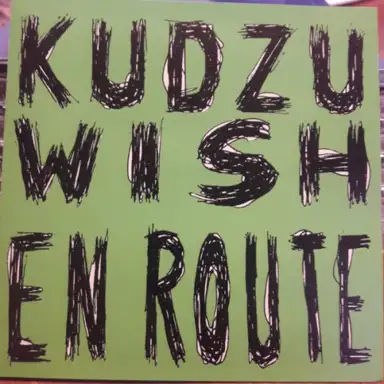 KUDZU
WISH
EN ROUTE